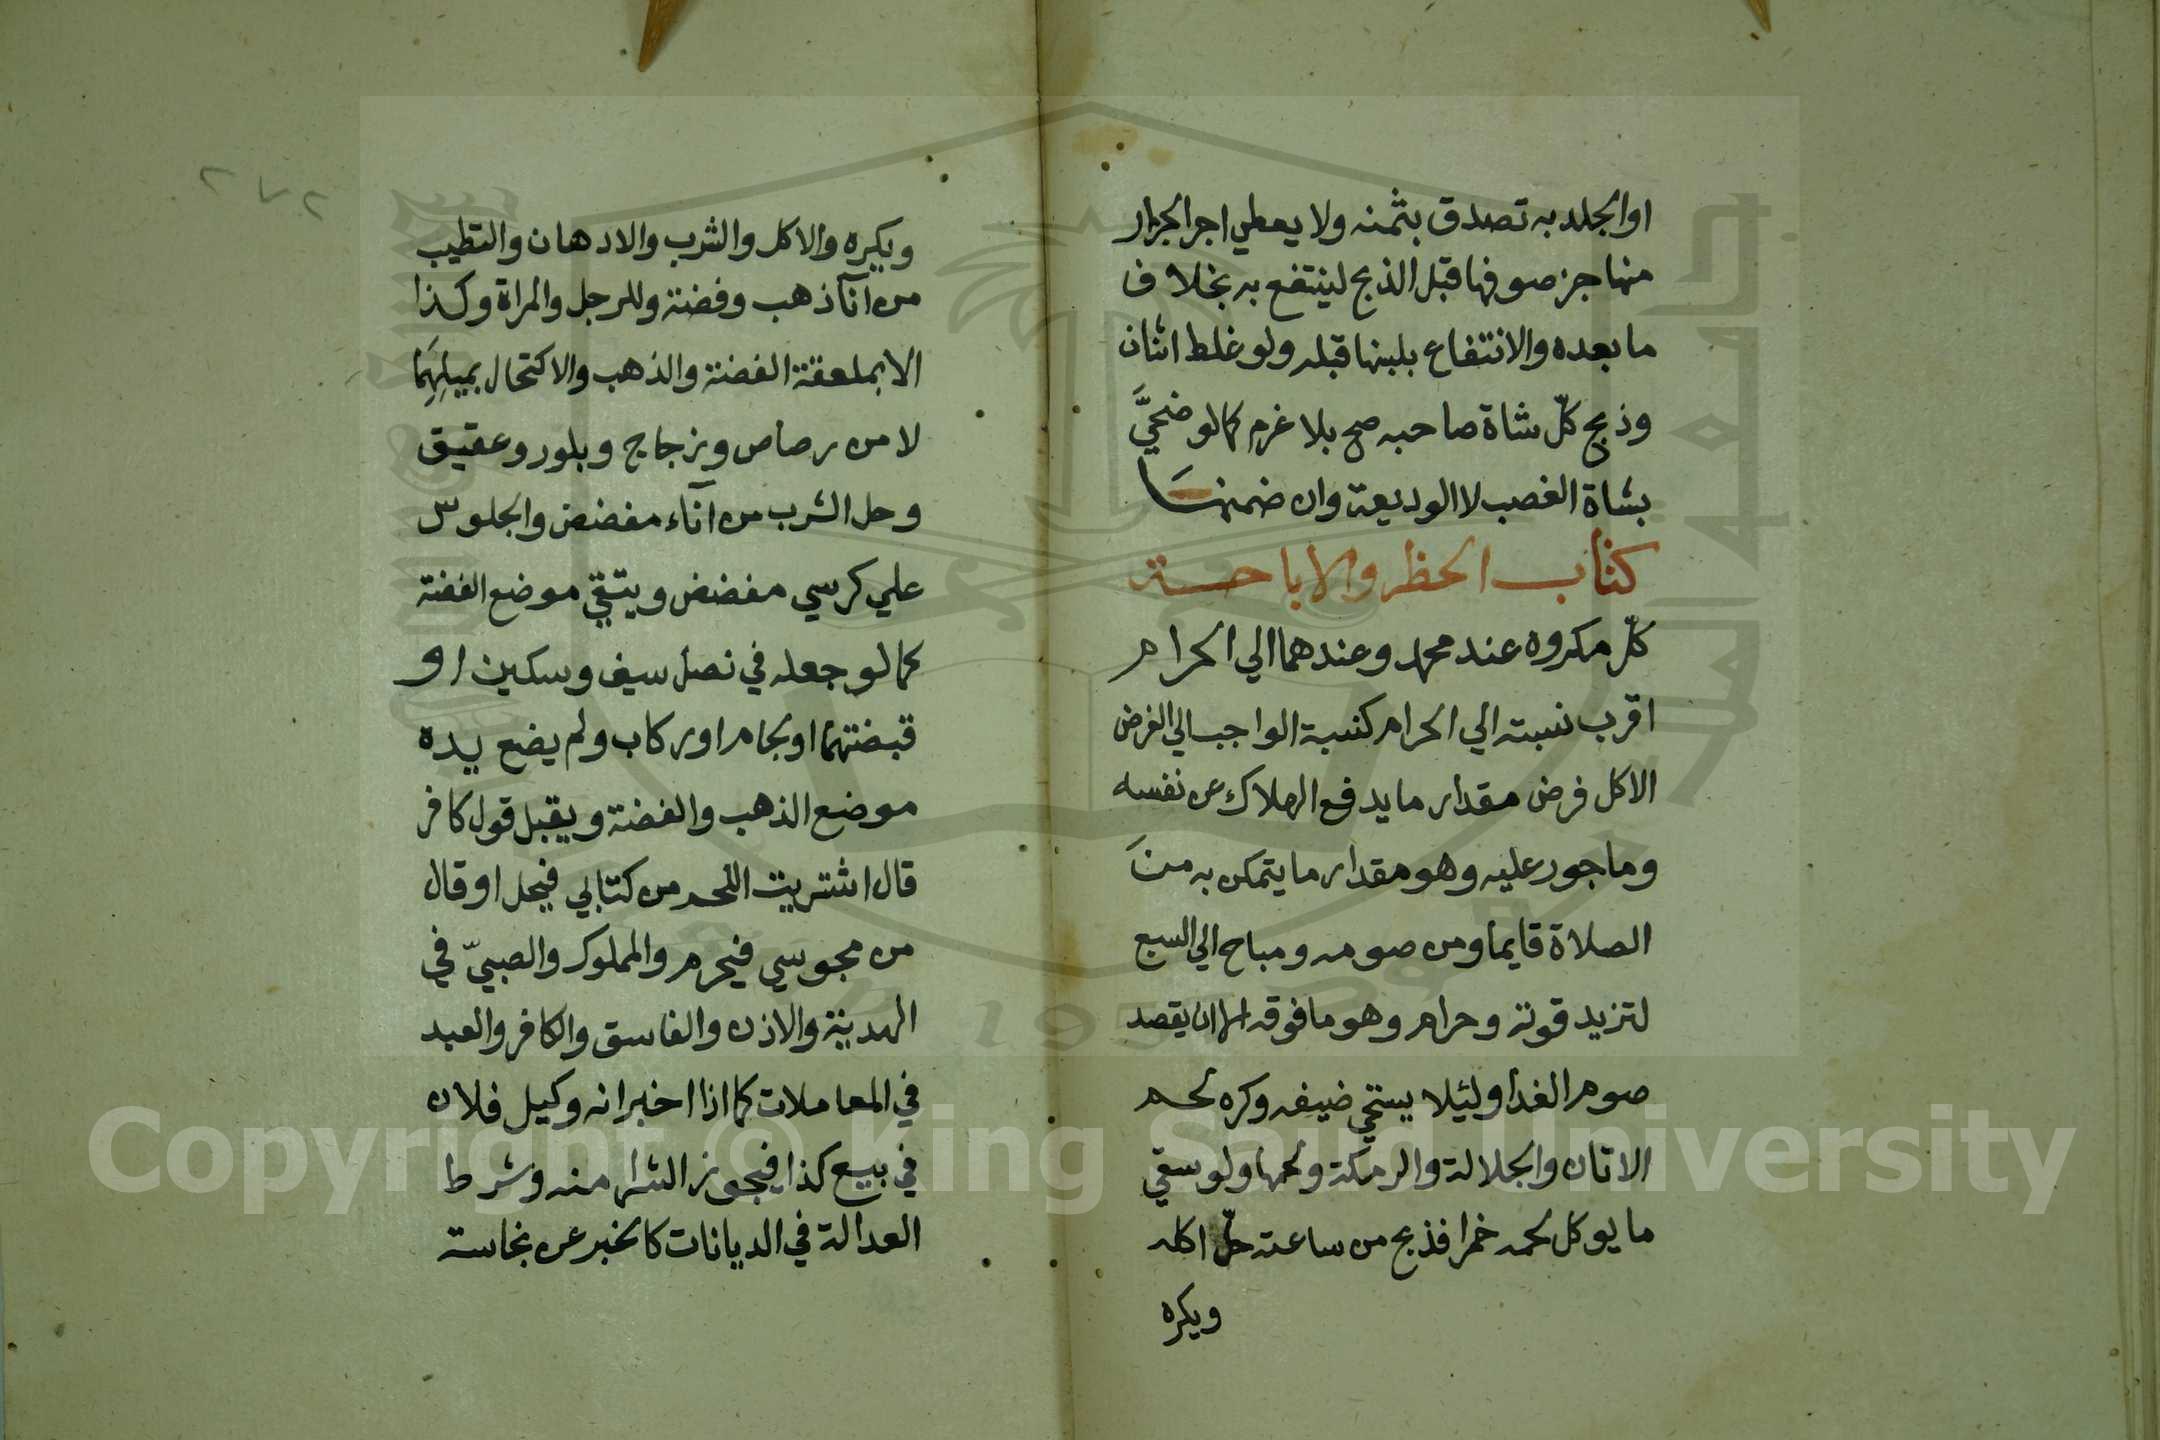 او الجلد به تصدق بثمنه ولا يعطي اجر الجزار
منها جز صوفها قبل الذبح لينتفع به بخلاف
ما بعده والانتفاع بلبنها قبله ولو غلط اثنان
وذبح كلّ شاة صاحبه صح بلا غرم كما لو ضحيَّ
بشاة الغصب لا الوديعة وان ضمنهَا
كتاب الحظر والاباحة
كلّ مكروه عند محمد وعندهما الي الحرام
اقرب نسبته الي الحرام كنسبة الواجب الي الفرض
الاكل فرض مقدار ما يدفع الهلاك عن نفسه
وماجور عليه وهو مقدار ما يتمكن به منَ
الصلاة قايما ومن صومه ومباح الي الشبع
لتزيد قوته وحرام وهو ما فوقه الا ان يقصد
صوم الغد او ليلا يستحي ضيفه وكره لحم
الاتان والجلالة والرمكة ولحمها ولو سقي
ما يوكل لحمه خمرا فذبح من ساعته حلّ اكله
ويكره
٢٧٢
ويكره والاكل والشرب والادهان والتطيب
من آنآ ذهب وفضة وللرجل والمراة وكذا
الا بملعقة الفضة والذهب والاكتحال بميلِهِمَا
لا من رصاص وزجاج وبلور وعقيق
وحل الشرب من آناء مفضض والجلوس
علي كرسي مفضض ويتقي موضع الفضة
كما لو جعله في نصل سيف وسكين او
قبضتهما او لجام او ركاب ولم يضع يده
موضع الذهب والفضة ويقبل قول كافر
قال اشتريت اللحم من كتابي فيحل او قال
من مجوسي فيحرم والمملوك والصبيّ في
الهدية والاذن والفاسق والكافر والعبد
في المعاملات كما اذا اخبر انه وكيل فلان
في بيع كذا فيجوز الشرا منه وشرط
العدالة في الديانات كالخبر عن نجاسة
Copyright © King Saud University